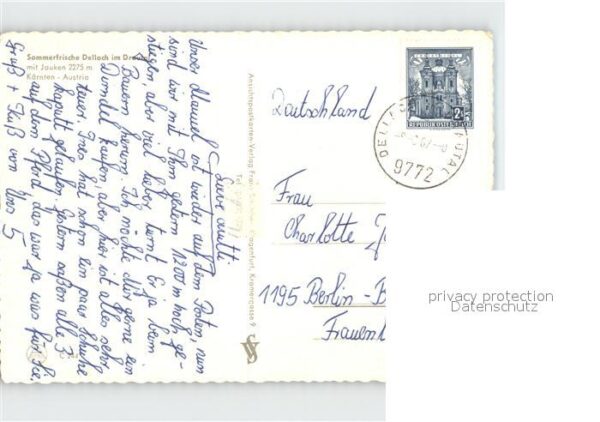 Sommerfrische Dellach im Dra
mit Jauken 2275 m
Kärnten - Austria
Liebe Mutti
Unser Manuel ist wieder auf dem Posten, nun
sind wir mit Ihm gestern 1200 m hoch ge-
stiegen, aber viel lieber turnt Er ja beim
Bauern herum. Ich möchte Mir gerne ein
Dirndel kaufen, aber hier ist alles sehr
teuer. Ines hat schon ein paar Schuhe
kaputt gelaufen. Gestern saßen alle 3
auf dem Pferd, das war ja was für Sie.
Gruß + Kuß von Uns 5
Ansichtspostkarten-Verlag Fran Klagenfurt, Kramergasse 9
Tel
REPUBLIK ÖSTERREICH
DELLACH UTAL
9772
Deutschland
Frau
Charlotte
1195 Berlin - B
Frauen
privacy protection
Datenschutz